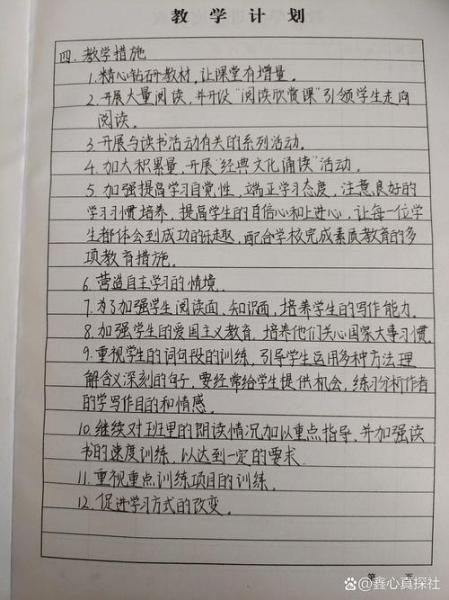 教学计划
四. 教学措施
1.精心钻研教材,让课堂有增量。
2.开展大量阅读,并开设“阅读欣赏课”引领学生走向
阅读。
3.开展与读书活动有关的系列活动。
4.加大积累量,开展“经典文化诵读”活动。
5.加强提高学习自觉性,端正学习态度,注意良好的
学习习惯培养,提高学生的自信心和上进心,让每一位学
生都体会到成功的乐趣,配合学校完成素质教育的多
项教育措施。
6.营造自主学习的情境。
7.为了加强学生阅读面、知识面,培养学生的写作能力。
8.加强学生的爱国主义教育,培养他们关心国家大事习惯.
9.重视学生的词句段的训练,引导学生运用多种方法理
解含义深刻的句子,要经常给学生提供机会,练习分析作者
的学写作目的和情感。
10.继续对班里的朗读情况加以重点指导,并加强读
书的速度训练,以达到一定的要求.
11.重视重点训练项目的训练。
12.促进学习方式的改变。
第 页
@鑫心真探社